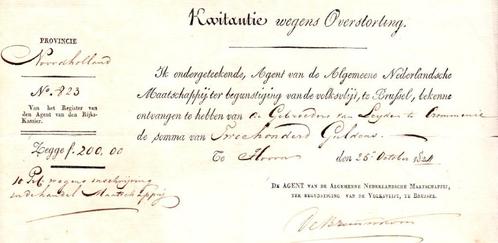 Kwitantie wegens Overstorting.
PROVINCIE
Noordholland
No. 823
Van het Register van
den Agent van den Rijks-
Kassier.
Zegge f. 200,00
10 Pct. wegens inschrijving
in de handel Maatschappij
Ik ondergeteekende, Agent van de Algemeene Nederlandsche
Maatschappij ter begunstiging van de volksvlijt, te Brussel, bekenne
ontvangen te hebben van de Gebroeders van Leyden te Crommenie
de somma van Tweehonderd Guldens.
Te Hoorn den 25 October 1824
DE AGENT VAN DE ALGEMEENE NEDERLANDSCHE MAATSCHAPPIJ,
TER BEGUNSTIGING VAN DE VOLKSVLIJT, TE BRUSSEL